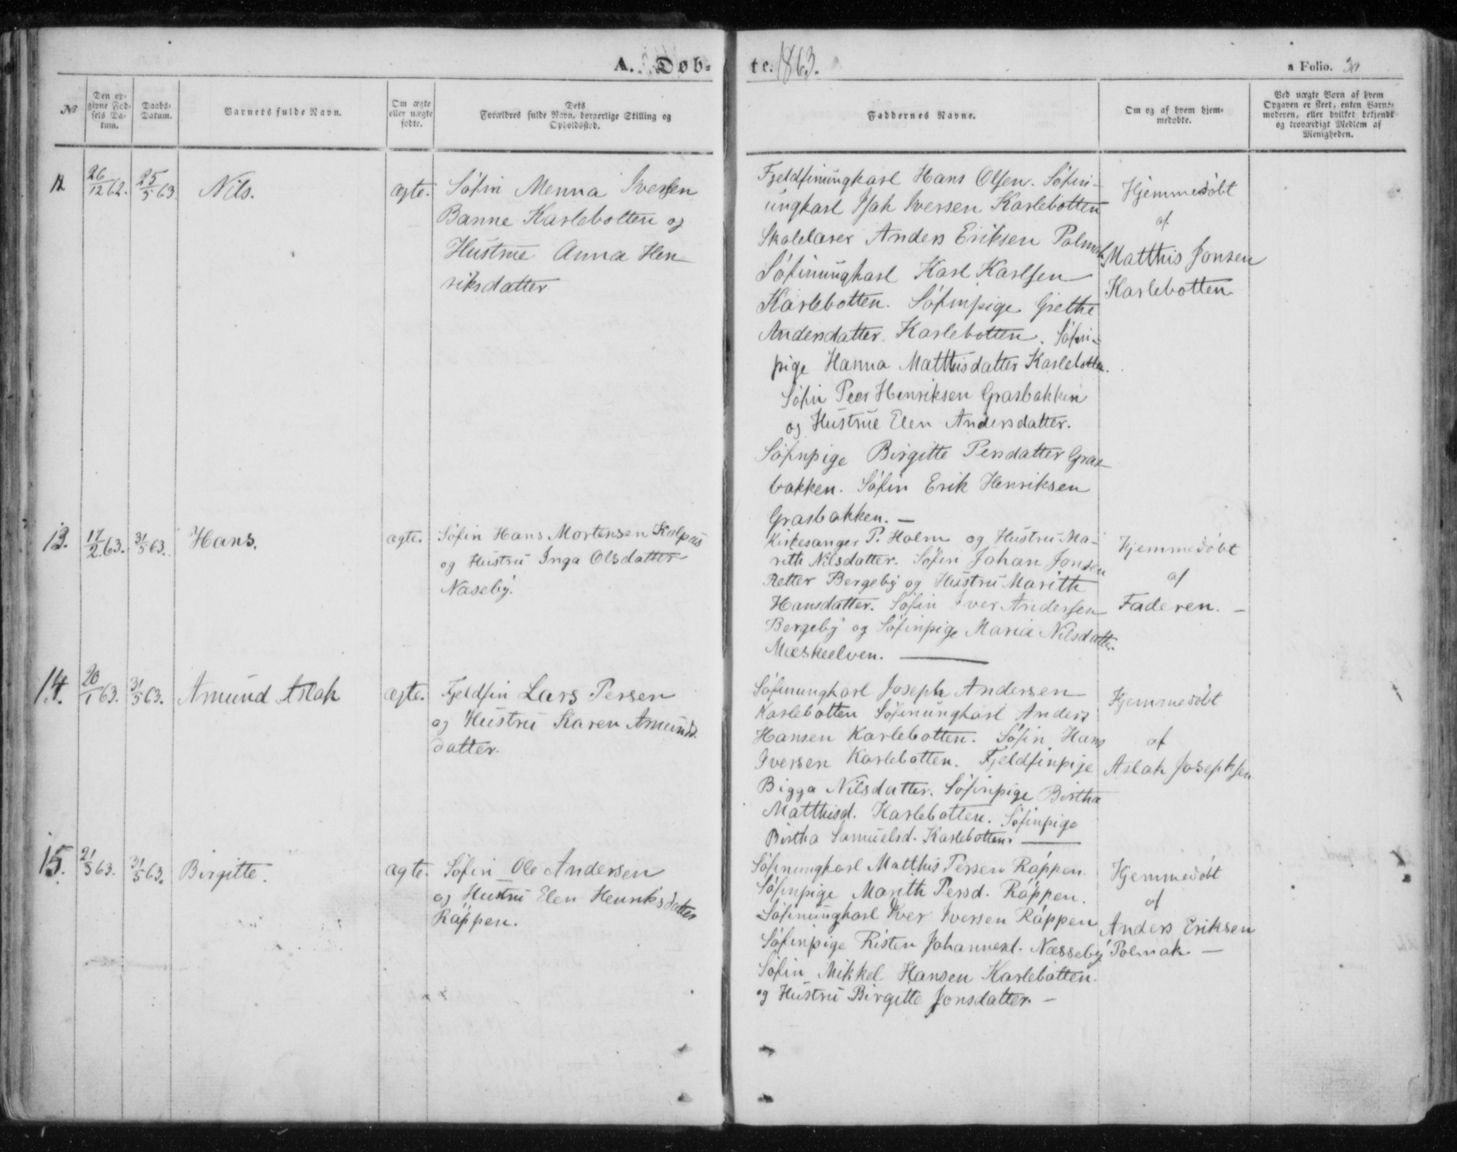 A. Døb-
te. 1863.
a Folio. 30
No
Den op-
givne Fød-
sels Da-
tum.
Daabs-
Datum.
Barnets fulde Navn.
Om ægte
eller uægte
fødte.
Dets
Forældres fulde Navn, borgerlige Stilling og
Opholdssted.
Faddernes Navne.
Om og af hvem hjem-
medøbte.
Ved uægte Børn af hvem
Opgaven er skeet, enten Barne-
moderen, eller hvilket bekjendt
og troværdigt Medlem af
Menigheden.
12
26/12 62.
25/5 63
Nils.
ægte.
Søfin Menna Iversen
Banne Karlebotten og
Hustrue Anna Hen
riksdatter
Fjeldfinungkarl Hans Olsen. Søfin-
ungkarl Isak Iversen Karlebotten
Skolelærer Anders Eriksen Polmak
Søfinungkarl Karl Karlsen
Karlebotten. Søfinpige Grethe
Andersdatter Karlebotten. Søfin-
pige Hanna Matthisdatter Karlebotten.
Søfin Peer Henriksen Grasbakken
og Hustrue Elen Andersdatter.
Søfinpige Birgitte Persdatter Gras-
bakken. Søfin Erik Henriksen
Grasbakken. —
Hjemmedøbt
af
Matthis Jonsen
Karlebotten
13.
17/2 63.
31/5 63.
Hans.
ægte.
Søfin Hans Mortensen
og Hustru Inga Olsdatter
Næseby.
Kirkesanger P. Holm og Hustru Ma-
rith Nilsdatter. Søfin Johan Jonsen
Retter Bergeby og Hustru Marith
Hansdatter. Søfin Iver Andersen
Bergeby og Søfinpige Maria Nilsdatter
Mæskeelven. —
Hjemmedøbt
af
Faderen. —
14.
20/1 63.
31/5 63.
Amund Aslak
ægte.
Fjeldfin Lars Persen
og Hustru Karen Amunds
datter.
Søfinungkarl Joseph Andersen
Karlebotten Søfinungkarl Anders
Hansen Karlebotten. Søfin Hans
Iversen Karlebotten. Fjeldfinpige
Bigga Nilsdatter. Søfinpige Birtha
Matthisd. Karlebotten. Søfinpige
Birtha Samuelsd. Karlebotten. —
Hjemmedøbt
af
Aslak Josephsen
15.
21/3 63.
31/5 63.
Birgitte.
ægte.
Søfin Ole Andersen
og Hustru Elen Henriksdatter
Råppen.
Søfinungkarl Matthis Persen Råppen.
Søfinpige Marith Persd. Råppen.
Søfinungkarl Iver Iversen Råppen
Søfinpige Risten Johannesd. Næsseby
Søfin Mikkel Hansen Karlebotten.
og Hustru Birgitte Jonsdatter. —
Hjemmedøbt
af
Anders Eriksen
Polmak —